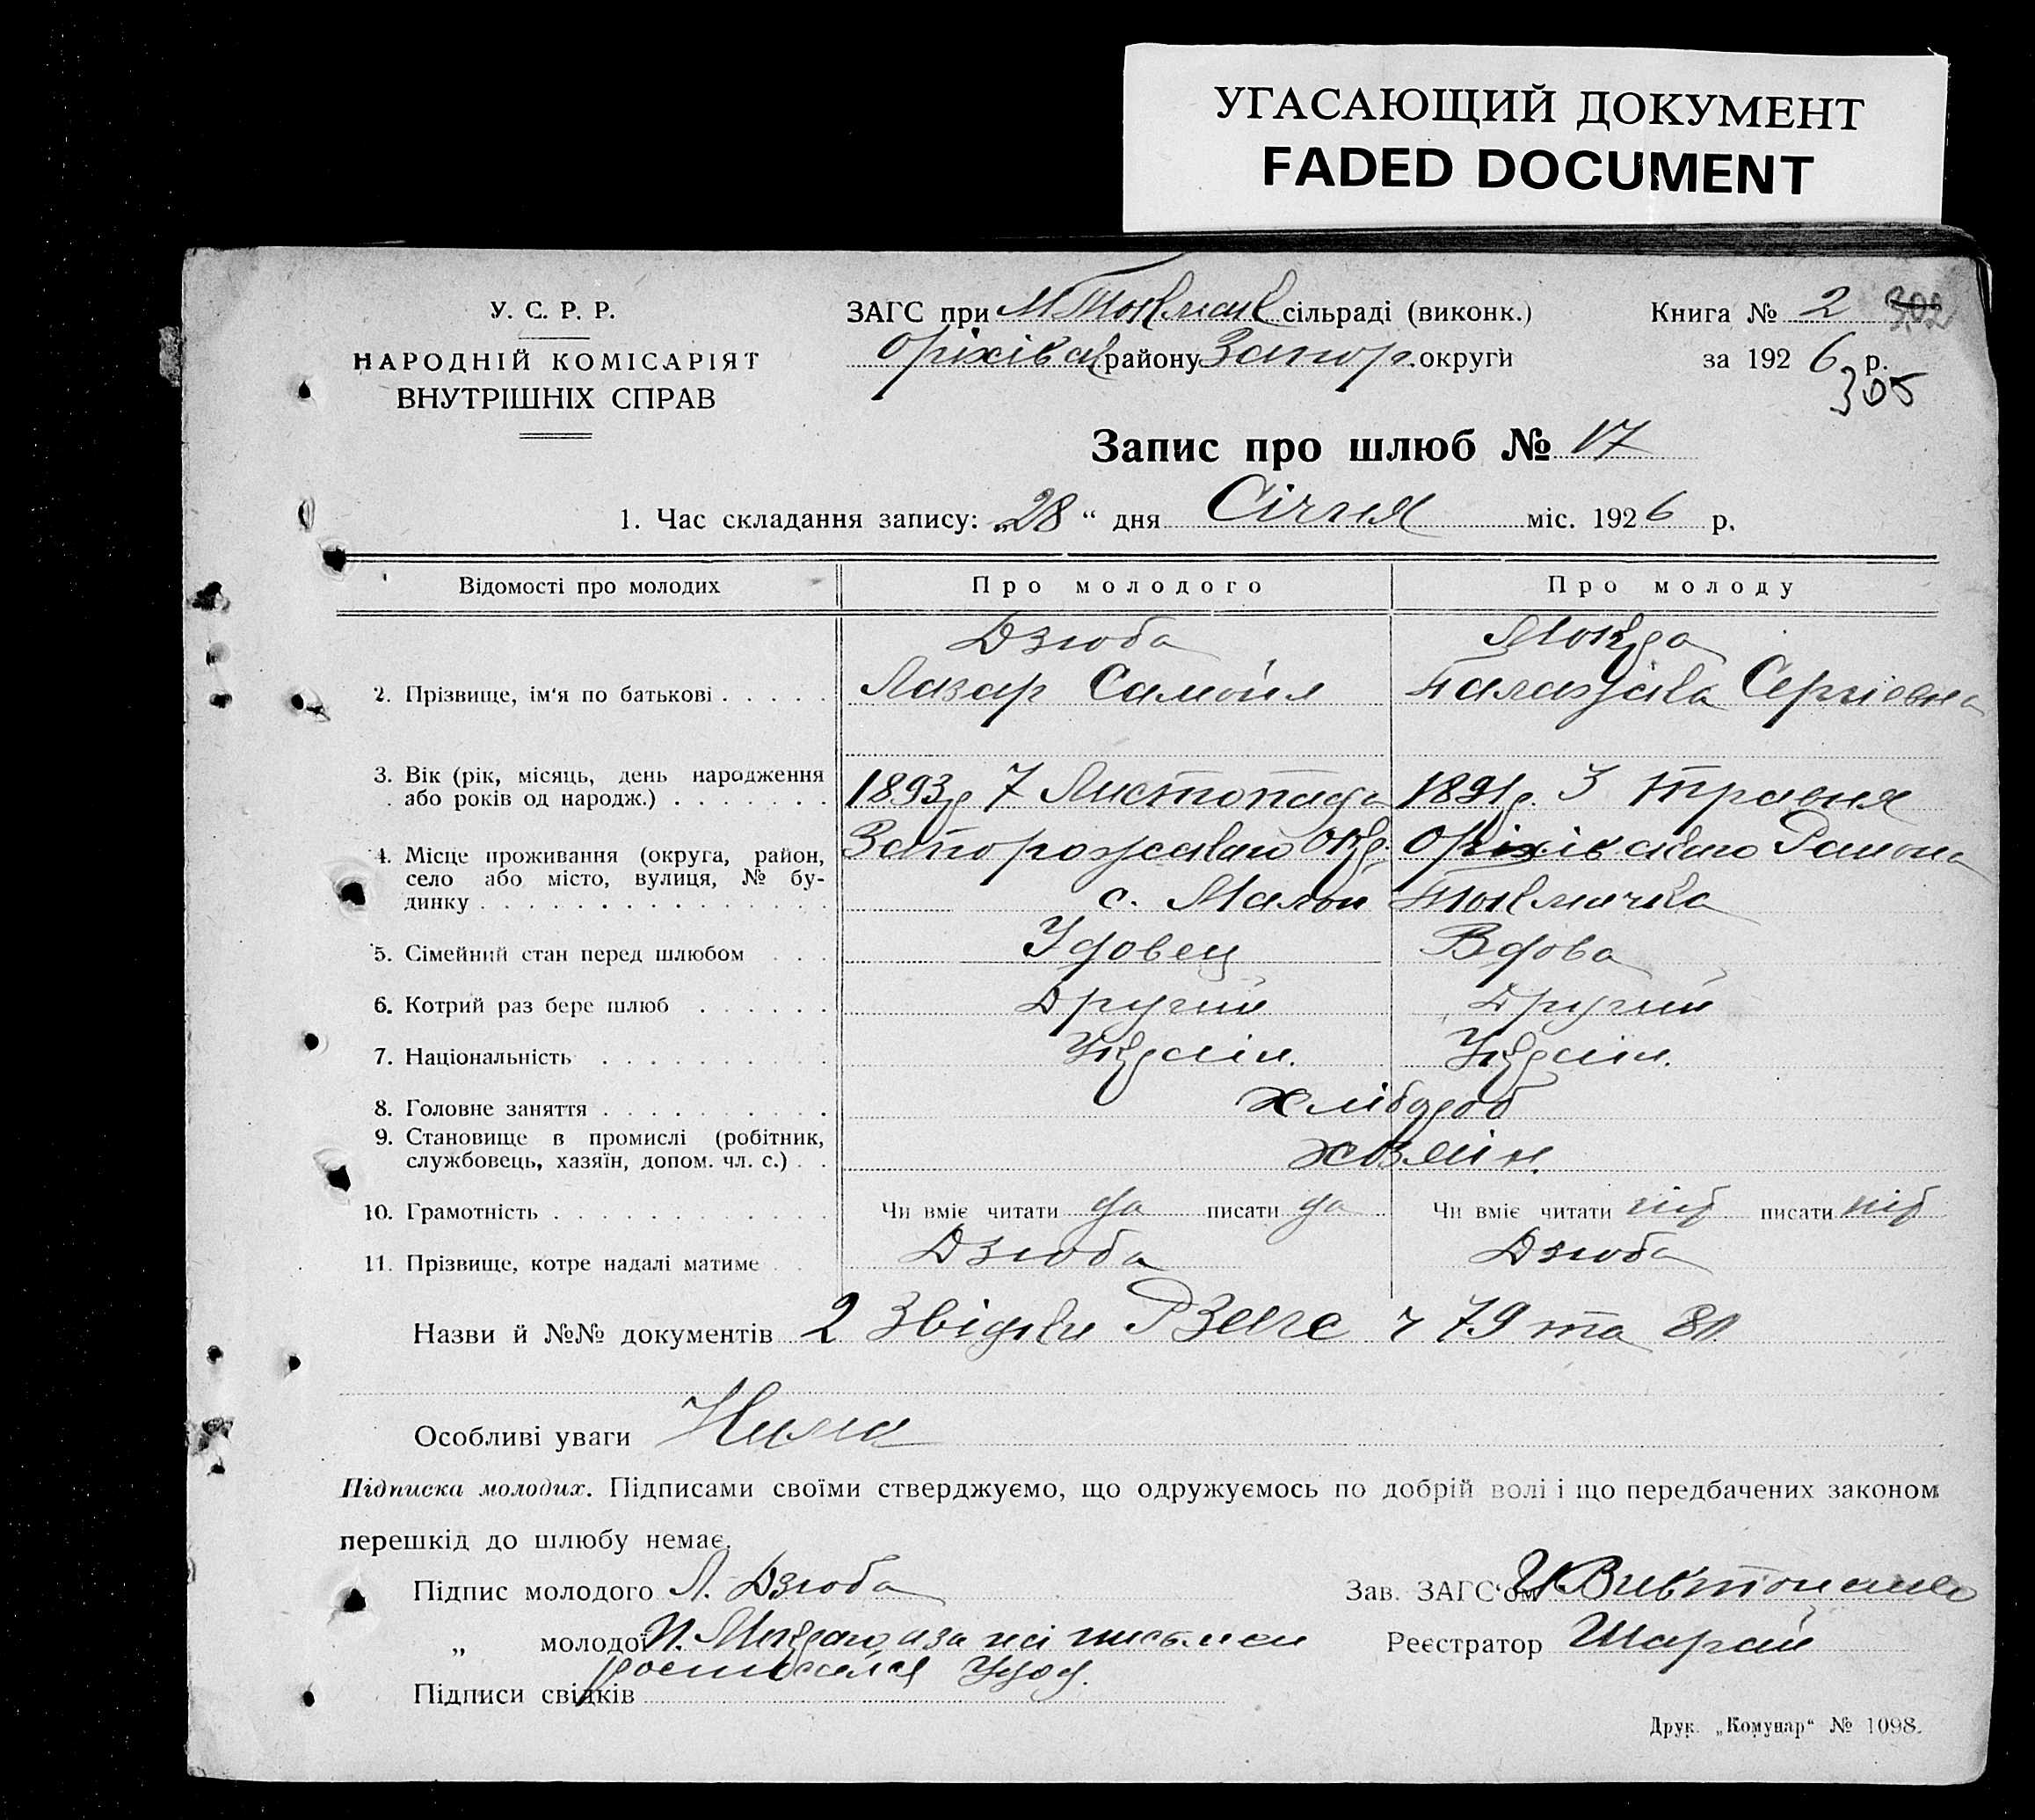 УГАСАЮЩИЙ ДОКУМЕНТ
FADED DOCUMENT
У. С. Р. Р.
НАРОДНІЙ КОМІСАРІЯТ
ВНУТРІШНІХ СПРАВ
ЗАГС при М Токмац сільраді (виконк.)
Оріхівск району Запор. округи
Книга № 2 302
за 1926 р.
305
Запис про шлюб № 17
1. Час складання запису: „28“ дня Січня міс. 1926 р.
Відомості про молодих Про молодого Про молоду
Дзюба Мокра
2. Прізвище, ім'я по батькові Лазар Самойл Парасківа Сергіевна
3. Вік (рік, місяць, день народження
або років од народж.) 1893р 7 Листопада 1891р. 3 травня
4. Місце проживання (округа, район, Запорожского Окр. Оріхівского Району
село або місто, вулиця, № бу-
динку с. Малои Токмачка
5. Сімейний стан перед шлюбом Удовец Вдова
6. Котрий раз бере шлюб Другий Другий
7. Національність Украін. Украін.
8. Головне заняття хлібороб
9. Становище в промислі (робітник,
службовець, хазяїн, допом. чл. с.) хозяин.
10. Грамотність Чи вміє читати да писати да Чи вміє читати ні писати ні
11. Прізвище, котре надалі матиме Дзюба Дзюба
Назви й №№ документів 2 Звідки РЗагс ч 79 та 81
Особливі уваги Нима
Підписка молодих. Підписами своїми стверджуємо, що одружуємось по добрій волі і що передбачених законом
перешкід до шлюбу немає.
Підпис молодого Л. Дзюба Зав. ЗАГС'ом
„ молодої П. Мокрая, а за неі письмен Реєстратор Шарай
росписался
Підписи свідків
Друк. „Комунар“ № 1098.